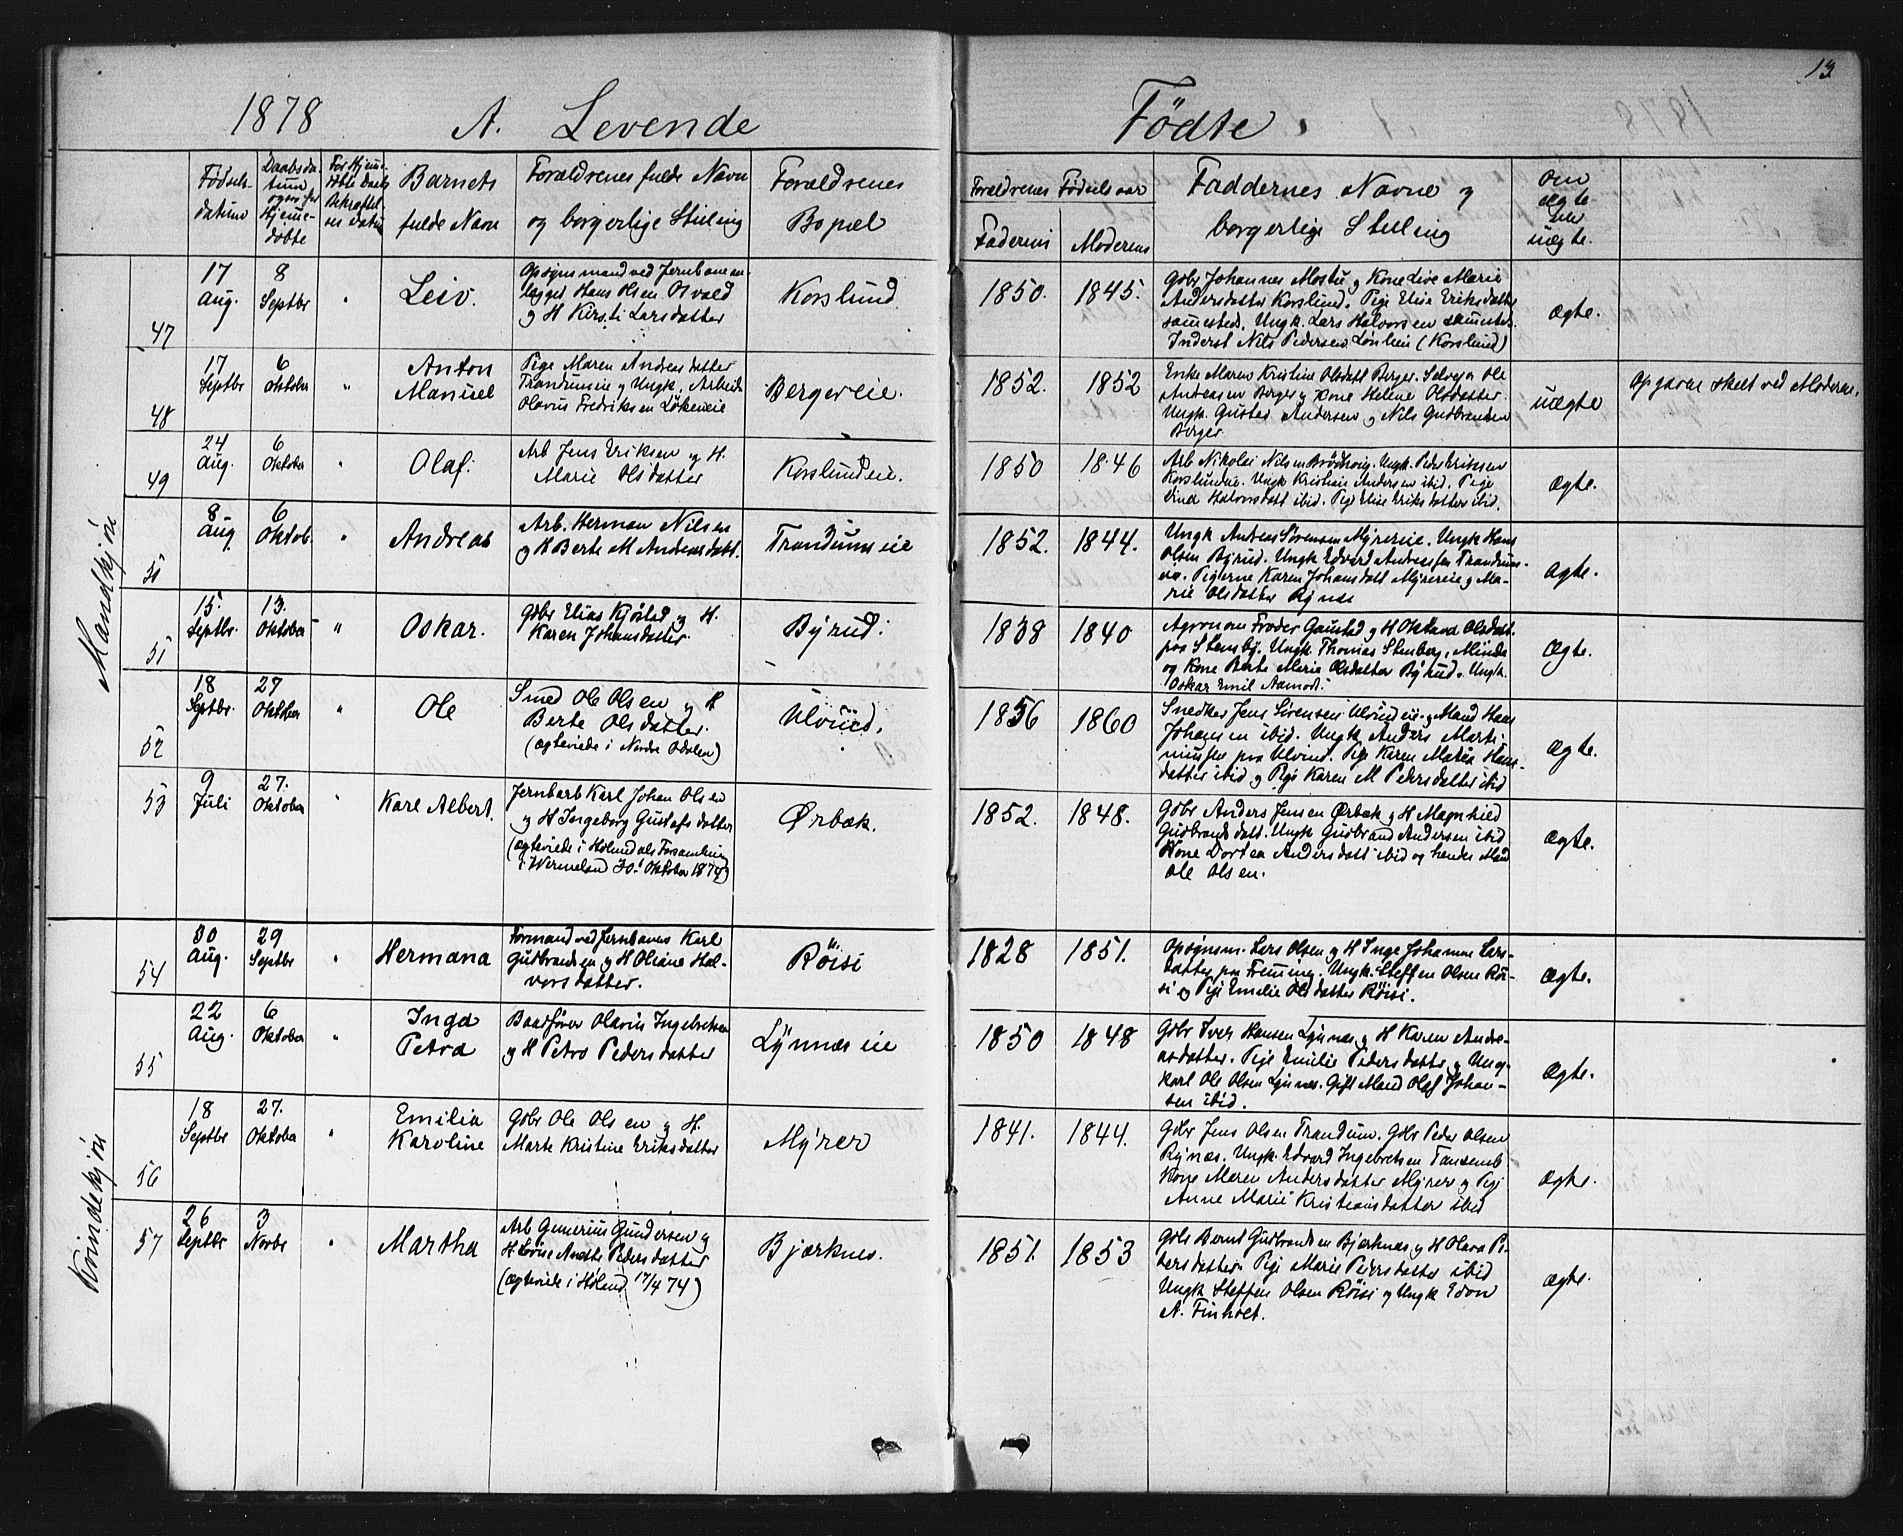 13.
1878 A. Levende Födte.
Födsels-
datum
Daabsda-
tum
ogsaa for
Hjemme-
döbte
For Hjemme-
döbte Daabs
Bekræftel-
ses Datum
Barnets
fulde Navn
Forældrenes fulde Navn
og borgerlige Stilling
Forældrenes
Bopæl
Forældrenes Födselsaar
Faderens
Moderens
Faddernes Navne og
borgerlige Stilling
om
ægte
eller
uægte.
Mandkjön
47
17
Aug.
8
Septbr
"
Leiv.
Opsynsmand ved Jernbanean-
lægget Hans Olsen Osvald
og H Kirsti Larsdatter
Korslund
1850.
1845.
Gbr Johannes Mostue og Kone Live Marie
Andersdatter Korslund. Pige Elise Eriksdatter
sammesteds. Ungk. Lars Halvorsen sammested.
Inderst Nils Pedersen Lönlien (Korslund)
Ægte.
48
17
Septbr
6
Oktober
"
Anton
Manuel
Pige Maren Andreasdatter
Trandumeie og Ungk. Arbeide
Olavus Fredriksen Lökeneie
Bergereie.
1852.
1852
Enke Maren Kristine Olsdatt Berger. Selvejer Ole
Andreasen Berger og Kone Helene Olsdatter.
Ungk. Gustav Andersen og Nils Gudbrandsen
Berger
uægte
Opgavne skelt ved Moderne.
49
24
Aug.
6
Oktober
"
Olaf.
Arb Jens Eriksen og H.
Marie Olsdatter
Korslundeie.
1850
1846
Arb Nikolai Nilsen Brödhovig. Ungk. Peder Eriksen
Korslundeie. Ungk Kristian Andersen ibid. Pige
Lina Halvorsdatt ibid. Pige Elise Eriksdatter ibid.
Ægte.
50
8
Aug
6
Oktob.
"
Andreas
Arb. Herman Nilsen
og H Berte M Andreasdatt.
Trandumseie
1852.
1844.
Ungk Anders Sörensen Myrereie. Ungk Hans
Olsen Byrud. Ungk Edvard Andreassen Trandum-
eie. Pigerne Karen Johansdatt Myrereie og Ma-
rie Olsdatter Rynæs
Ægte.
51
15.
Septbr.
13.
Oktober
"
Oskar.
Gbr Elias Kjöstad og H.
Karen Johansdatter
Byrud.
1838
1840
Agronom Frodes Gaustad og H Oktava Olsdatt.
paa Stensby. Ungk. Thomas Stenberg, Minde
og Kone Berte Marie Olsdatter Byrud. Ungk.
Oskar Emil Aamodt.
Ægte.
52
18
Septbr.
27
Oktober
"
Ole
Smed Ole Olsen og H
Berte Olsdatter.
(ægteviede i Nordre Odalen)
Ulvind.
1856
1860
Snedker Jens Sörensen Ulvindeie og Mand Hans
Johansen ibid. Ungk Anders Marti-
niussen paa Ulvind. Pige Karen Maria Hans-
datter ibid og Pige Karen M Pedersdatter ibid
Ægte.
53
9
Juli
27.
Oktober
"
Karl Albert.
Jernbarb Karl Johan Olsen
og H Ingeborg Gustafsdatter
(ægteviede i Holmedals Forsamling
i Wermeland 30. Oktober 1874)
Ørbæk.
1852.
1848.
Gbr Anders Jensen Ørbæk og H Magnhild
Gudbrandsdatt. Ungk Gudbrand Andersen ibid
Kone Dortea Andersdatt ibid og hendes Mand
Ole Olsen.
Ægte.
Kvindekjön
54
30
Aug.
29
Septbr
"
Hermana
Formand ved Jernbanen Karl
Gudbrandsen og H Oliane Hal-
vorsdatter.
Röisi
1828
1851.
Opsynsm. Lars Olsen og H Inge Johanne Lars-
datter paa Fremming. Ungk. Steffen Olsen Röi-
si og Pige Emilie Olsdatter Röisi.
Ægte.
55
22
Aug.
6
Oktober
"
Inga
Petra
Baadförer Olavus Ingebretsen
og H Petra Pedersdatter
Lynnæseie
1850
1848
Gbr Iver Hansen Lynnæs og H Karen Andre-
asdatter. Pige Emilie Pedersdatter og Ung-
karl Ole Olsen Lynnæs. Gift Mand Olaf Johan-
sen ibid.
Ægte.
56
18
Septbr
27.
Oktober
"
Emilia
Karoline
Gbr Ole Olsen og H.
Marte Kristine Eriksdatter
Myrer
1841.
1844.
Gbr Jens Olsen Trandum. Gbr Peder Olsen
Rynæs. Ungk. Edvard Ingebretsen Tansemb.
Kone Maren Andersdatter Myrer og Pige
Anne Marie Kristiansdatter ibid
Ægte.
57
26
Septbr
3
Novbr
"
Martha
Arb Gunerius Gundersen og
H Lovise Anette Pedersdatter
(ægteviede i Höland 17/4 74)
Bjærknes.
1851.
1853
Gbr Bernt Gudbrandsen Bjærknæs og H Olava Pe-
dersdatter. Pige Marie Pedersdatter ibid
Ungk Steffen Olsen Röisi og Ungk Edvard
A. Finholt.
Ægte.